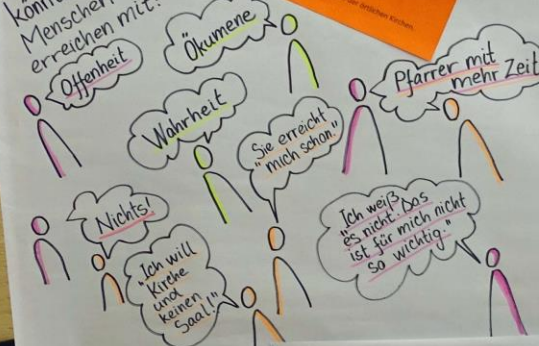 könn
Menschen
erreichen mit?
der örtlichen Kirchen.
Offenheit
Ökumene
Pfarrer mit
mehr Zeit
Wahrheit
"Sie erreicht
mich schon."
Nichts!
"Ich will
Kirche
und
keinen
Saal!"
"Ich weiß
es nicht. Das
ist für mich nicht
so wichtig."